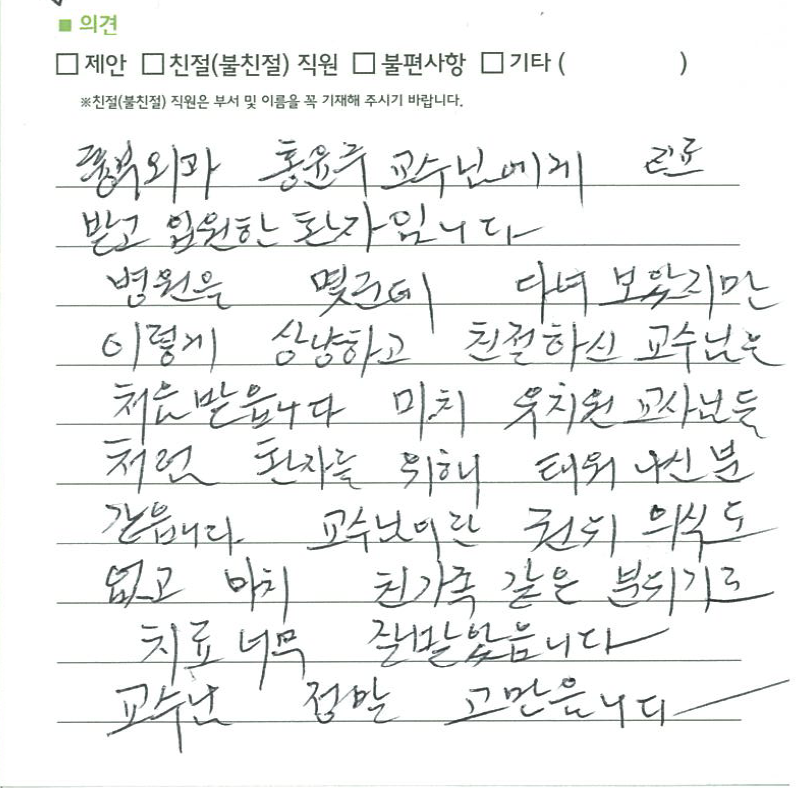 ■ 의견
□ 제안 □ 친절(불친절) 직원 □ 불편사항 □ 기타 ( )
※친절(불친절) 직원은 부서 및 이름을 꼭 기재해 주시기 바랍니다.
흉부외과 홍윤주 교수님에게 진료
받고 입원한 환자입니다
병원은 몇군데 다녀 보았지만
이렇게 상냥하고 친절하신 교수님은
처음 받읍니다 마치 유치원 교사님들
처럼 환자를 위해 태워 나신 분
같읍니다. 교수님이란 권위 의식도
없고 마치 친가족 같은 분위기로
치료 너무 잘받았읍니다
교수님 정말 고만읍니다